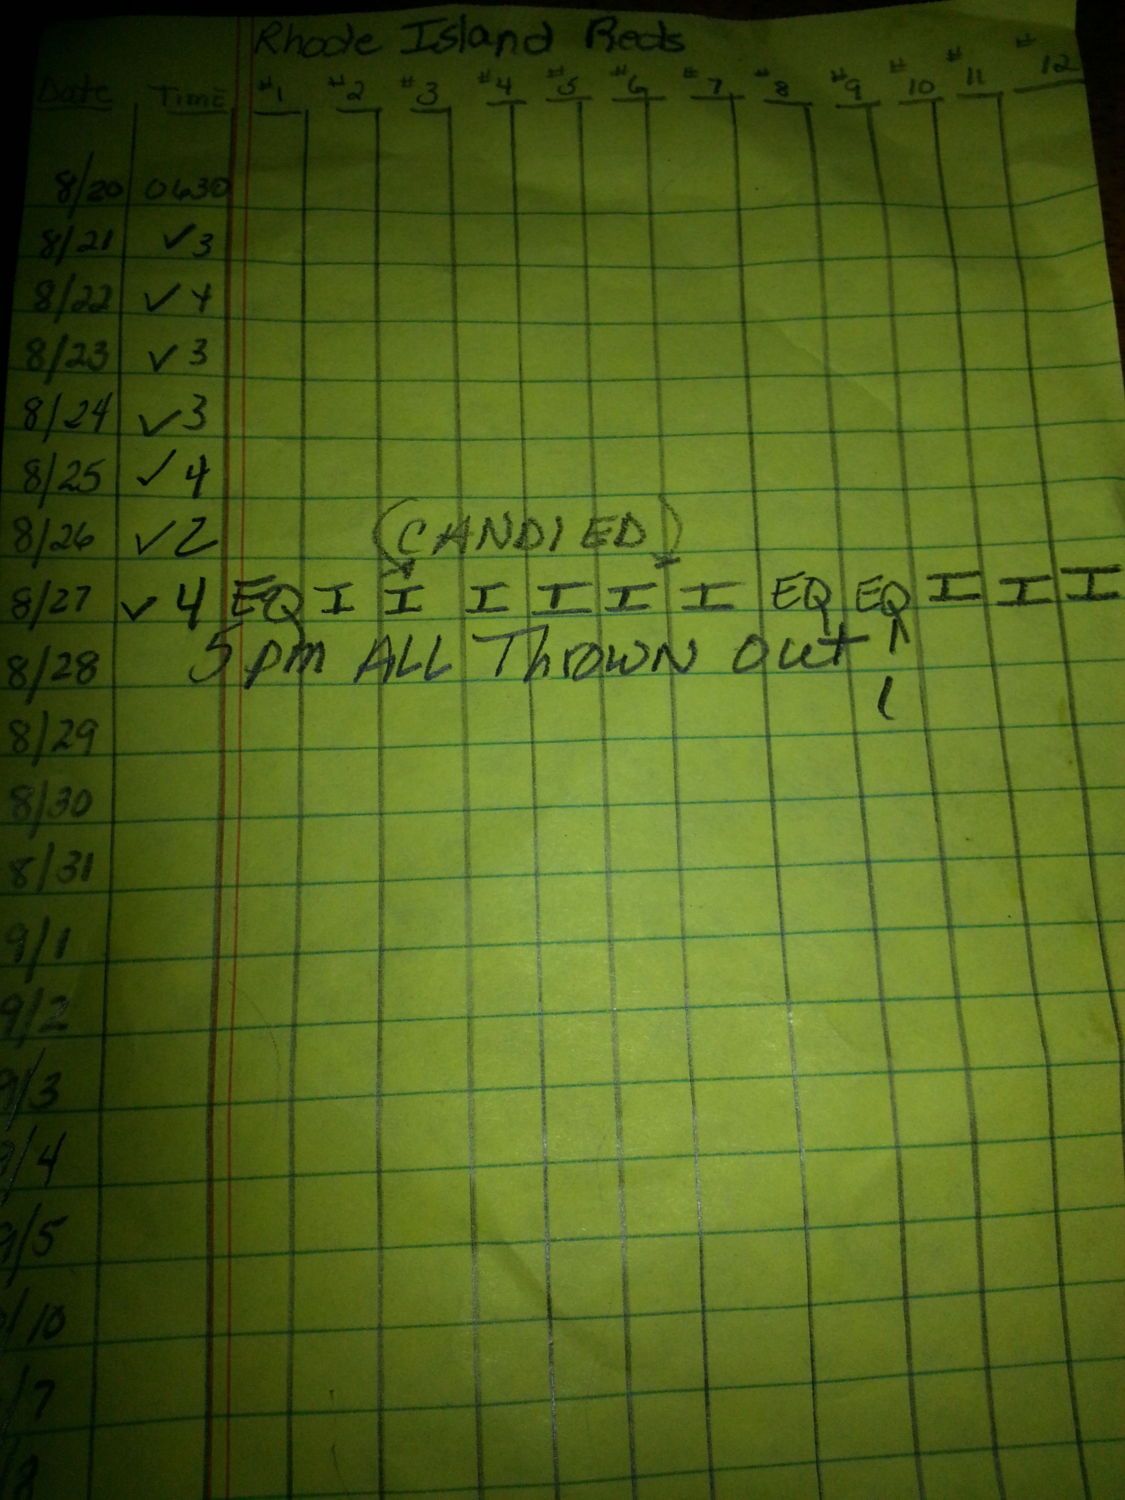 Rhode Island Reds
Date Time #1 #2 #3 #4 #5 #6 #7 #8 #9 #10 #11 #12
8/20 0630
8/21 ✓3
8/22 ✓4
8/23 ✓3
8/24 ✓3
8/25 ✓4
8/26 ✓2 (CANDIED)
8/27 ✓4 EQ I I I I I I EQ EQ I I I
8/28 5pm ALL Thrown Out
8/29
8/30
8/31
9/1
9/2
9/3
9/4
9/5
/10
/7
/8